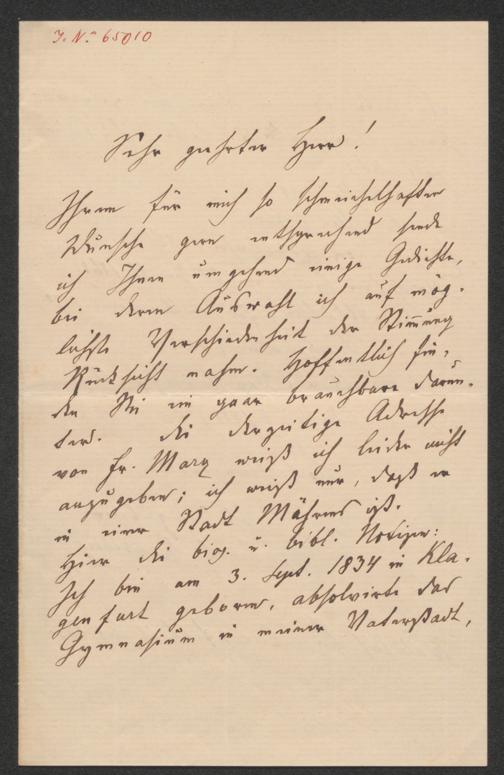 J. N. 65010
Sehr geehrter Herr!
Ihrem für mich so schmeichelhaften
Wunsche gern entsprechend sende
ich Ihnen umgehend einige Gedichte,
bei deren Auswahl ich auf mög-
lichste Verschiedenheit der Stimmung
Rücksicht nahm. Hoffentlich fin-
den Sie ein paar brauchbare darun-
ter. Die derzeitige Adresse
von Fr. Marx weiß ich leider nicht
anzugeben; ich weiß nur, daß er
in einer Stadt Mährens ist.
Hier die biog. u. bibl. Notizen:
Ich bin am 3. Sept. 1834 in Kla-
genfurt geboren, absolvirte das
Gymnasium in meiner Vaterstadt,